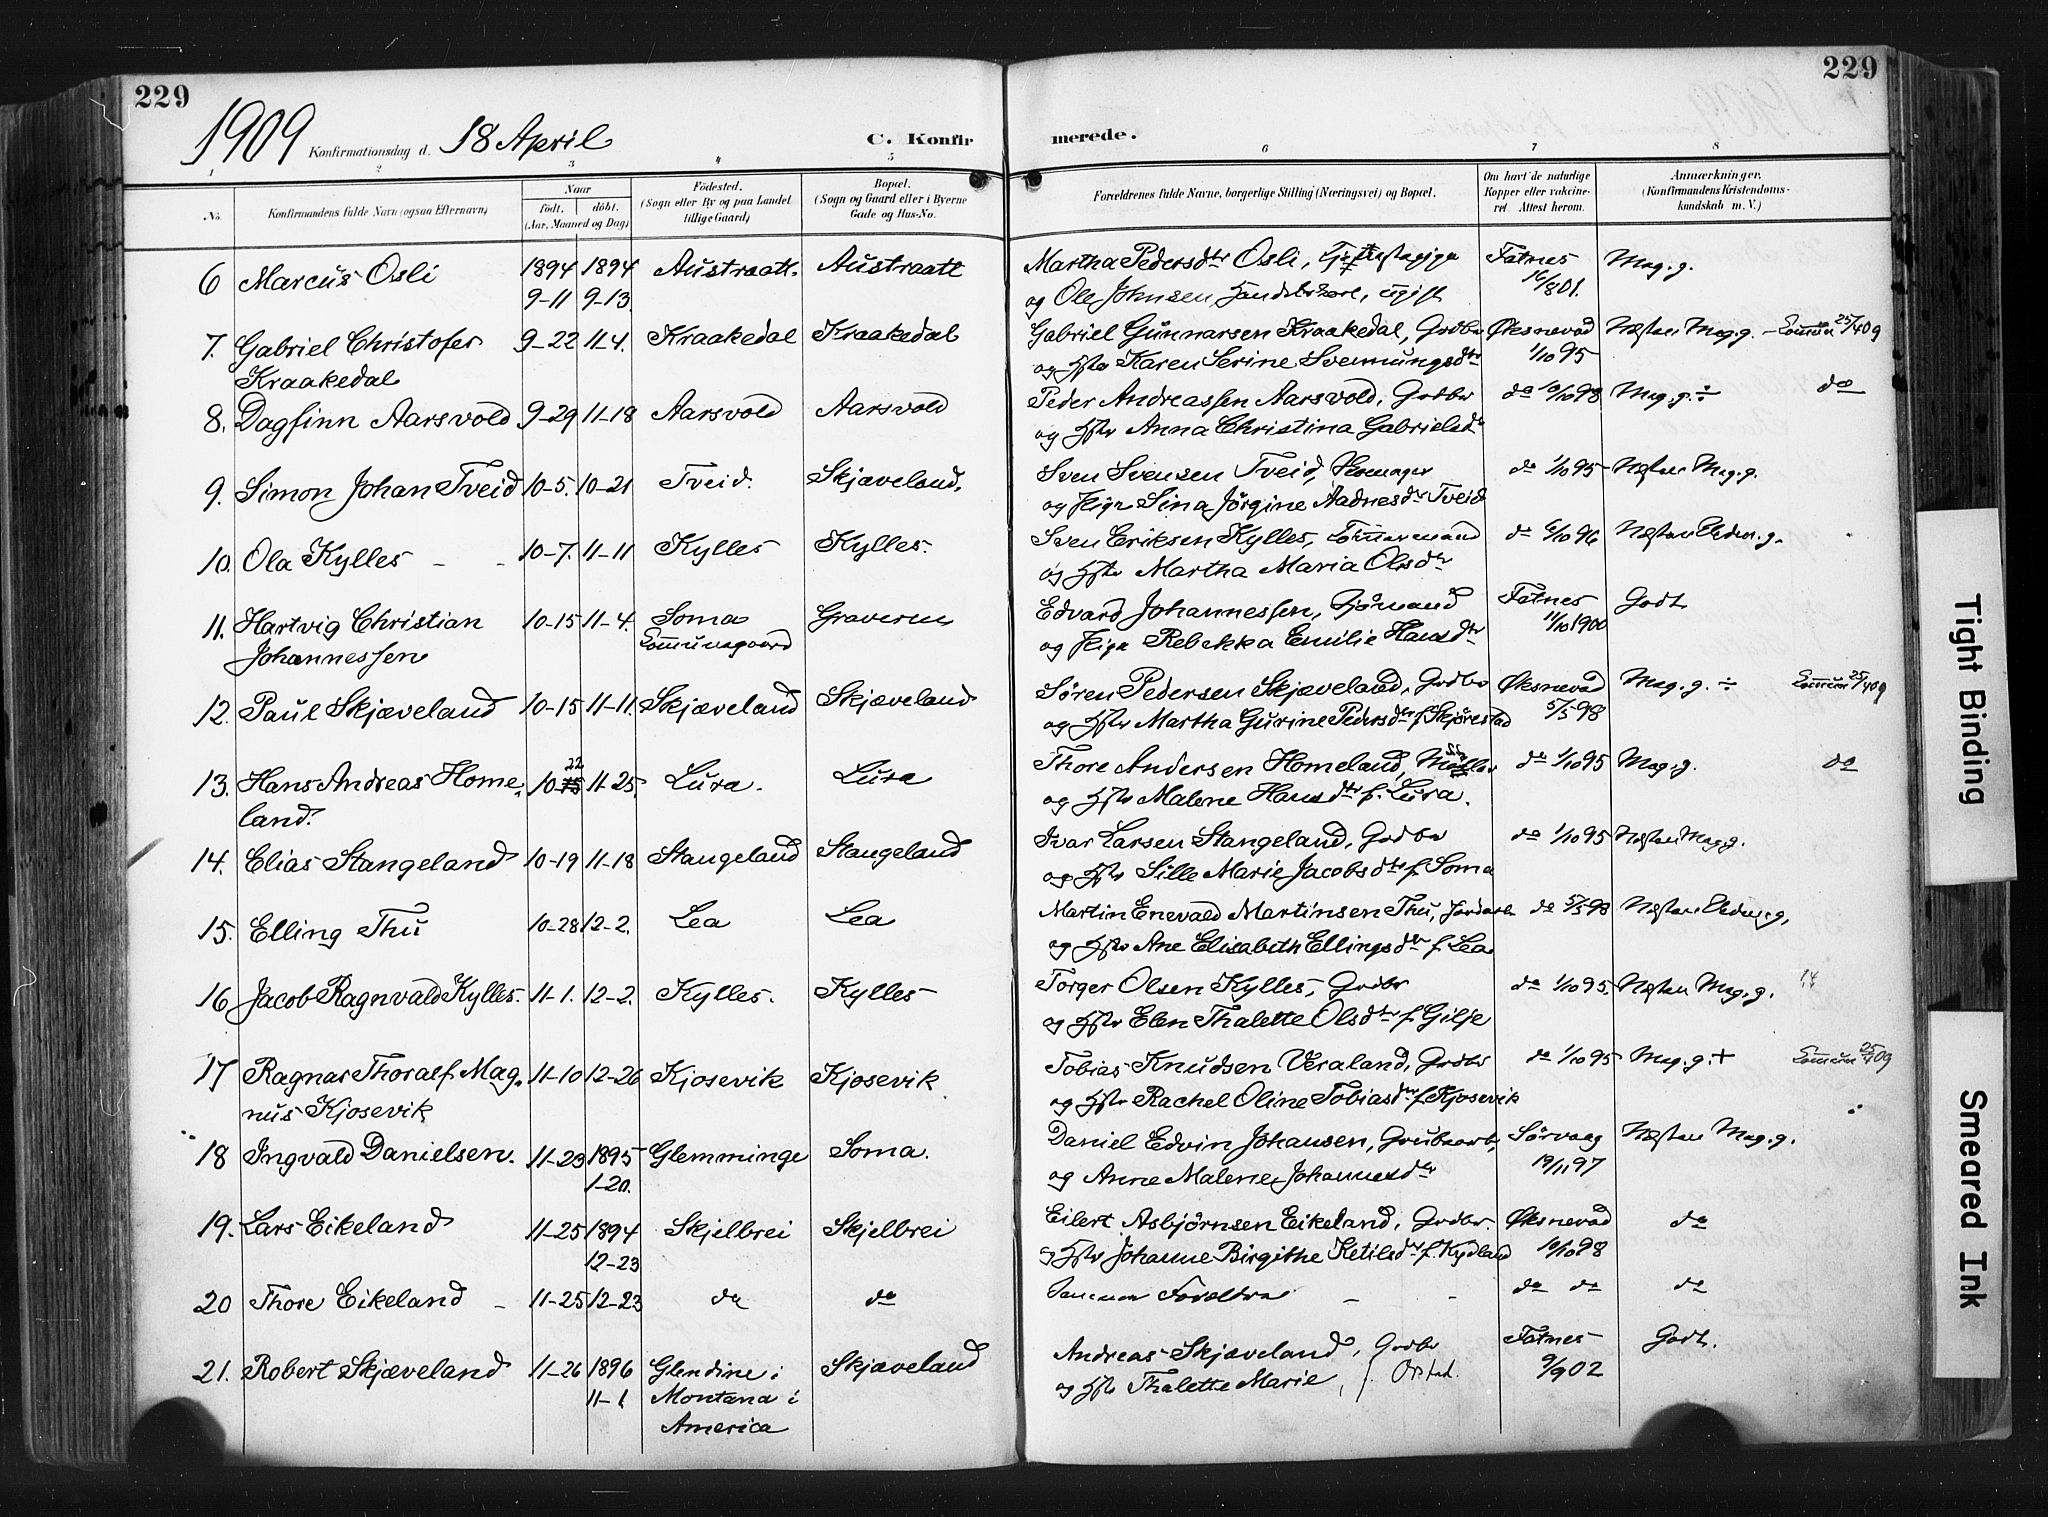 229
229
1909 Konfirmationsdag d. 18 April
C. Konfir merede.
1 2 3 4 5 6 7 8
No. Konfirmandens fulde Navn (ogsaa Efternavn)
Naar
født. døbt.
(Aar, Maaned og Dag)
Fødested.
(Sogn eller By og paa Landet
tillige Gaard)
Bopæl.
(Sogn og Gaard eller i Byerne
Gade og Hus-No.
Forældrenes fulde Navne, borgerlige Stilling (Næringsvei) og Bopæl.
Om havt de naturlige
Kopper eller vakcine-
ret. Attest herom.
Anmærkninger.
(Konfirmandens Kristendoms-
kundskab m. V.)
6 Marcus Osli 1894 1894 Austraatt. Austraatt Martha Pedersdtr Osli, Fatnes Mag. g.
9-11 9-13 og Ole Johnsen ugift 16/8 01.
7. Gabriel Christofer 9-22 11-4. Kraakedal Kraakedal Gabriel Gunnarsen Kraakedal, Grdbr Øksnevad Næsten Mag. g. 25/4 09
Kraakedal og Hstr Karen Serine Svenungsdtr 1/10 95
8. Dagfinn Aarsvold 9-29 11-18 Aarsvold Aarsvold Peder Andreassen Aarsvold, Grdbr do 10/10 98 Mag. g. ÷ do
og Hstr Anna Christina Gabrielsdr
9. Simon Johan Tveid 10-5. 10-21 Tveid. Skjæveland. Sven Svensen Tveid, do 1/10 95 Næsten Mag. g.
og Sina Jørgine Aadnesdtr Tveid
10. Ola Kylles - - 10-7. 11-11 Kylles Kylles. Sven Eriksen Kylles, do 6/10 96 Næsten g.
og Hstr Martha Maria Olsdtr
11. Hartvig Christian 10-15 11-4. Soma Graveren Edvard Johannessen, Fatnes Godt
Johannessen og Rebekka Emilie Hansdtr 11/10 1900
12. Paul Skjæveland 10-15 11-11. Skjæveland Skjæveland Søren Pedersen Skjæveland, Grdbr Øksnevad Mag. g. ÷ 25/4 09
og Hstr Martha Gurine Pedersdtr f. Skjørestad 5/5 98
22
13. Hans Andreas Home- 10-15 11-25. Lura. Lura Thore Andersen Homeland, Møller do 1/10 95 Mag. g. do
land. og Hstr Malene Hansdtr f. Lura.
14. Elias Stangeland 10-19 11-18 Stangeland Stangeland Ivar Larsen Stangeland, Grdbr do 1/10 95 Næsten Mag. g.
og Hstr Sille Marie Jacobsdtr f. Soma
15. Elling Thu 10-28 12-2. Lea Lea Martin Enevald Martinsen Thu, do 5/5 98 Næsten g.
og Hstr Ane Elisabeth Ellingsdtr f. Lea
16 Jacob Ragnvald Kylles. 11-1. 12-2. Kylles. Kylles Torger Olsen Kylles, Grdbr do 1/10 95. Næsten Mag. g.
og Hstr Elen Thalette Olsdtr f. Gilje
17 Ragnar Thoralf Mag- 11-10 12-26 Kjosevik Kjosevik Tobias Knudsen Veraland, Grdbr do 1/10 95 Mag. g. + 25/4 09
nus Kjosevik og Hstr Rachel Oline Tobiasdtr f. Kjosevik
18 Ingvald Danielsen. 11-23 1895 Glemminge Soma. Daniel Edvin Johansen, Sørvaag Næsten Mag. g.
1-20. og Anne Malene Johannesdtr 19/11 97
19. Lars Eikeland 11-25 1894 Skjelbrei Skjelbrei Eilert Asbjørnsen Eikeland, Grdbr. Øksnevad do
12-23 og Hstr Johanne Birgithe Ketilsdtr f. Kydland 10/10 98
20 Thore Eikeland - 11-25 12-23 do do Samme Foreldre - - do do do
21. Robert Skjæveland 11-26 1896 Glendine i Skjæveland Andreas Skjæveland, Grdbr Fatnes Godt.
11-1 Montana i og Hstr Thalette Marie, f. Orstad. 9/9 02
America
Tight Binding
Smeared Ink